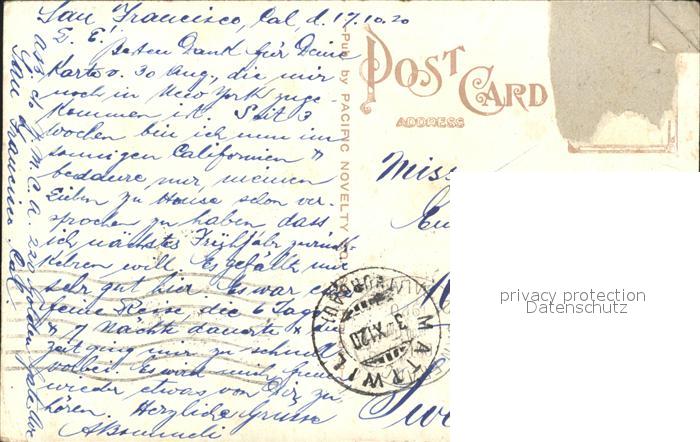 San Francisco, Cal, d. 17.10.20
L. E.! Besten Dank für Deine
Karte v. 30 Aug., die mir
noch in New York zuge-
kommen ist. Seit 3
Wochen bin ich nun im
sonnigen Californien &
bedaure nur, meinen
Lieben zu Hause schon ver-
sprochen zu haben dass
ich nächstes Frühjahr zurück-
kehren will. Es gefällt mir
sehr gut hier. Es war eine
feine Reise, die 6 Tage
& 7 Nächte dauerte & die
Zeit ging mir zu schnell
vorbei. Es wird mich freuen
wieder etwas von Dir zu
hören. Herzliche Grüsse
Y.M.C.A. 220 Golden Gate Ave
San Francisco Cal.
Pub by PACIFIC NOVELTY CO.
POST CARD
ADDRESS
Miss
MATTWIL
3 XI 20
privacy protection
Datenschutz